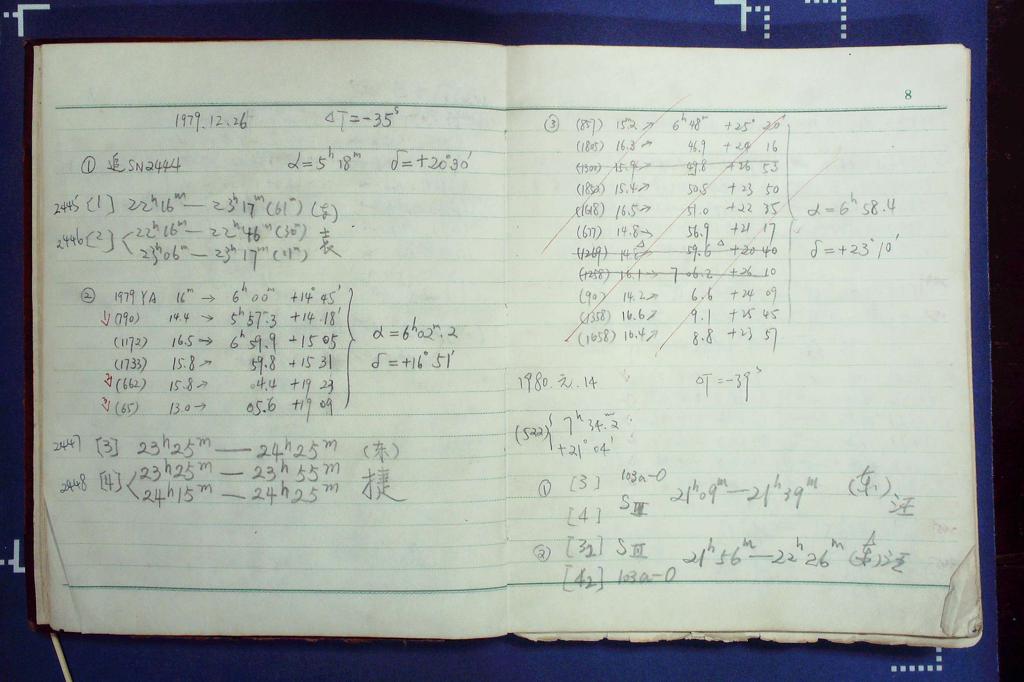 1979.12.26 ΔT=-35ˢ
① 追SN2444 α=5ʰ18ᵐ δ=+20°30′
2445 [1] 22ʰ16ᵐ — 23ʰ17ᵐ (61ᵐ)
2446 [2] 22ʰ16ᵐ — 22ʰ46ᵐ (30ᵐ)
23ʰ06ᵐ — 23ʰ17ᵐ (11ᵐ)
② 1979 YA 16ᵐ → 6ʰ00ᵐ +14°45′
(790) 14.4 → 5ʰ57.3 +14.18′
(1172) 16.5 → 6ʰ59.9 +15 05
(1733) 15.8 → 59.8 +15 31
(662) 15.8 → 04.4 +19 23
(65) 13.0 → 05.6 +19 09
α=6ʰ02ᵐ.2
δ=+16°51′
2447 [3] 23ʰ25ᵐ — 24ʰ25ᵐ (东)
2448 [4] 23ʰ25ᵐ — 23ʰ55ᵐ 捷
24ʰ15ᵐ — 24ʰ25ᵐ
8
③ (857) 15.2 → 6ʰ48ᵐ +25° 20′
(1805) 16.3 → 46.9 +24 16
(1300) 15.9 → 49.8 +26 53
(1850) 15.4 → 50.5 +23 50
(1618) 16.5 → 51.0 +22 35
(677) 14.8 → 56.9 +21 17
(1269) 14.8 → 59.6 +20 40
(1258) 16.1 → 7 06.2 +26 10
(90) 14.2 → 6.6 +24 09
(1358) 16.6 → 9.1 +25 45
(1658) 16.4 → 8.8 +23 57
α=6ʰ58.4
δ=+23°10′
1980.元.14 ΔT=-39ˢ
(522) 7ʰ34ᵐ.2
+21°04′
① [3] 103a-O 21ʰ09ᵐ — 21ʰ39ᵐ (东) 汪
[4] SⅢ
② [3₂] SⅢ 21ʰ56ᵐ — 22ʰ26ᵐ (东) 汪
[4₂] 103a-O